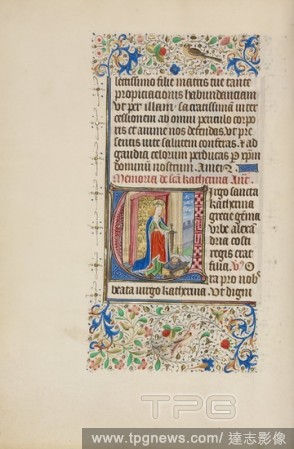 lectissimo filie matris tue tante
propiciacionis habundantiam
ut per illam sacratissima inter
cessionem ab omni periculo corpo
ris et anime nos defendas. Ut pre
sentis vite salutem conferas. & ad
gaudia celorum perducas. P xpm
dominū nostrum. Amen.
Memoria de scā katherina. Ant.
Virgo sancta
katherina
grecie gēma
urbe alexā
dria costi
regis erat
filia. V
Ora pro nob
beata virgo katherina. Ut digni
TPG
www.tpgnews.com / 達志影像